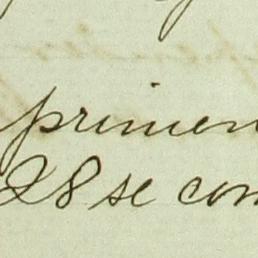 primer
28 se com